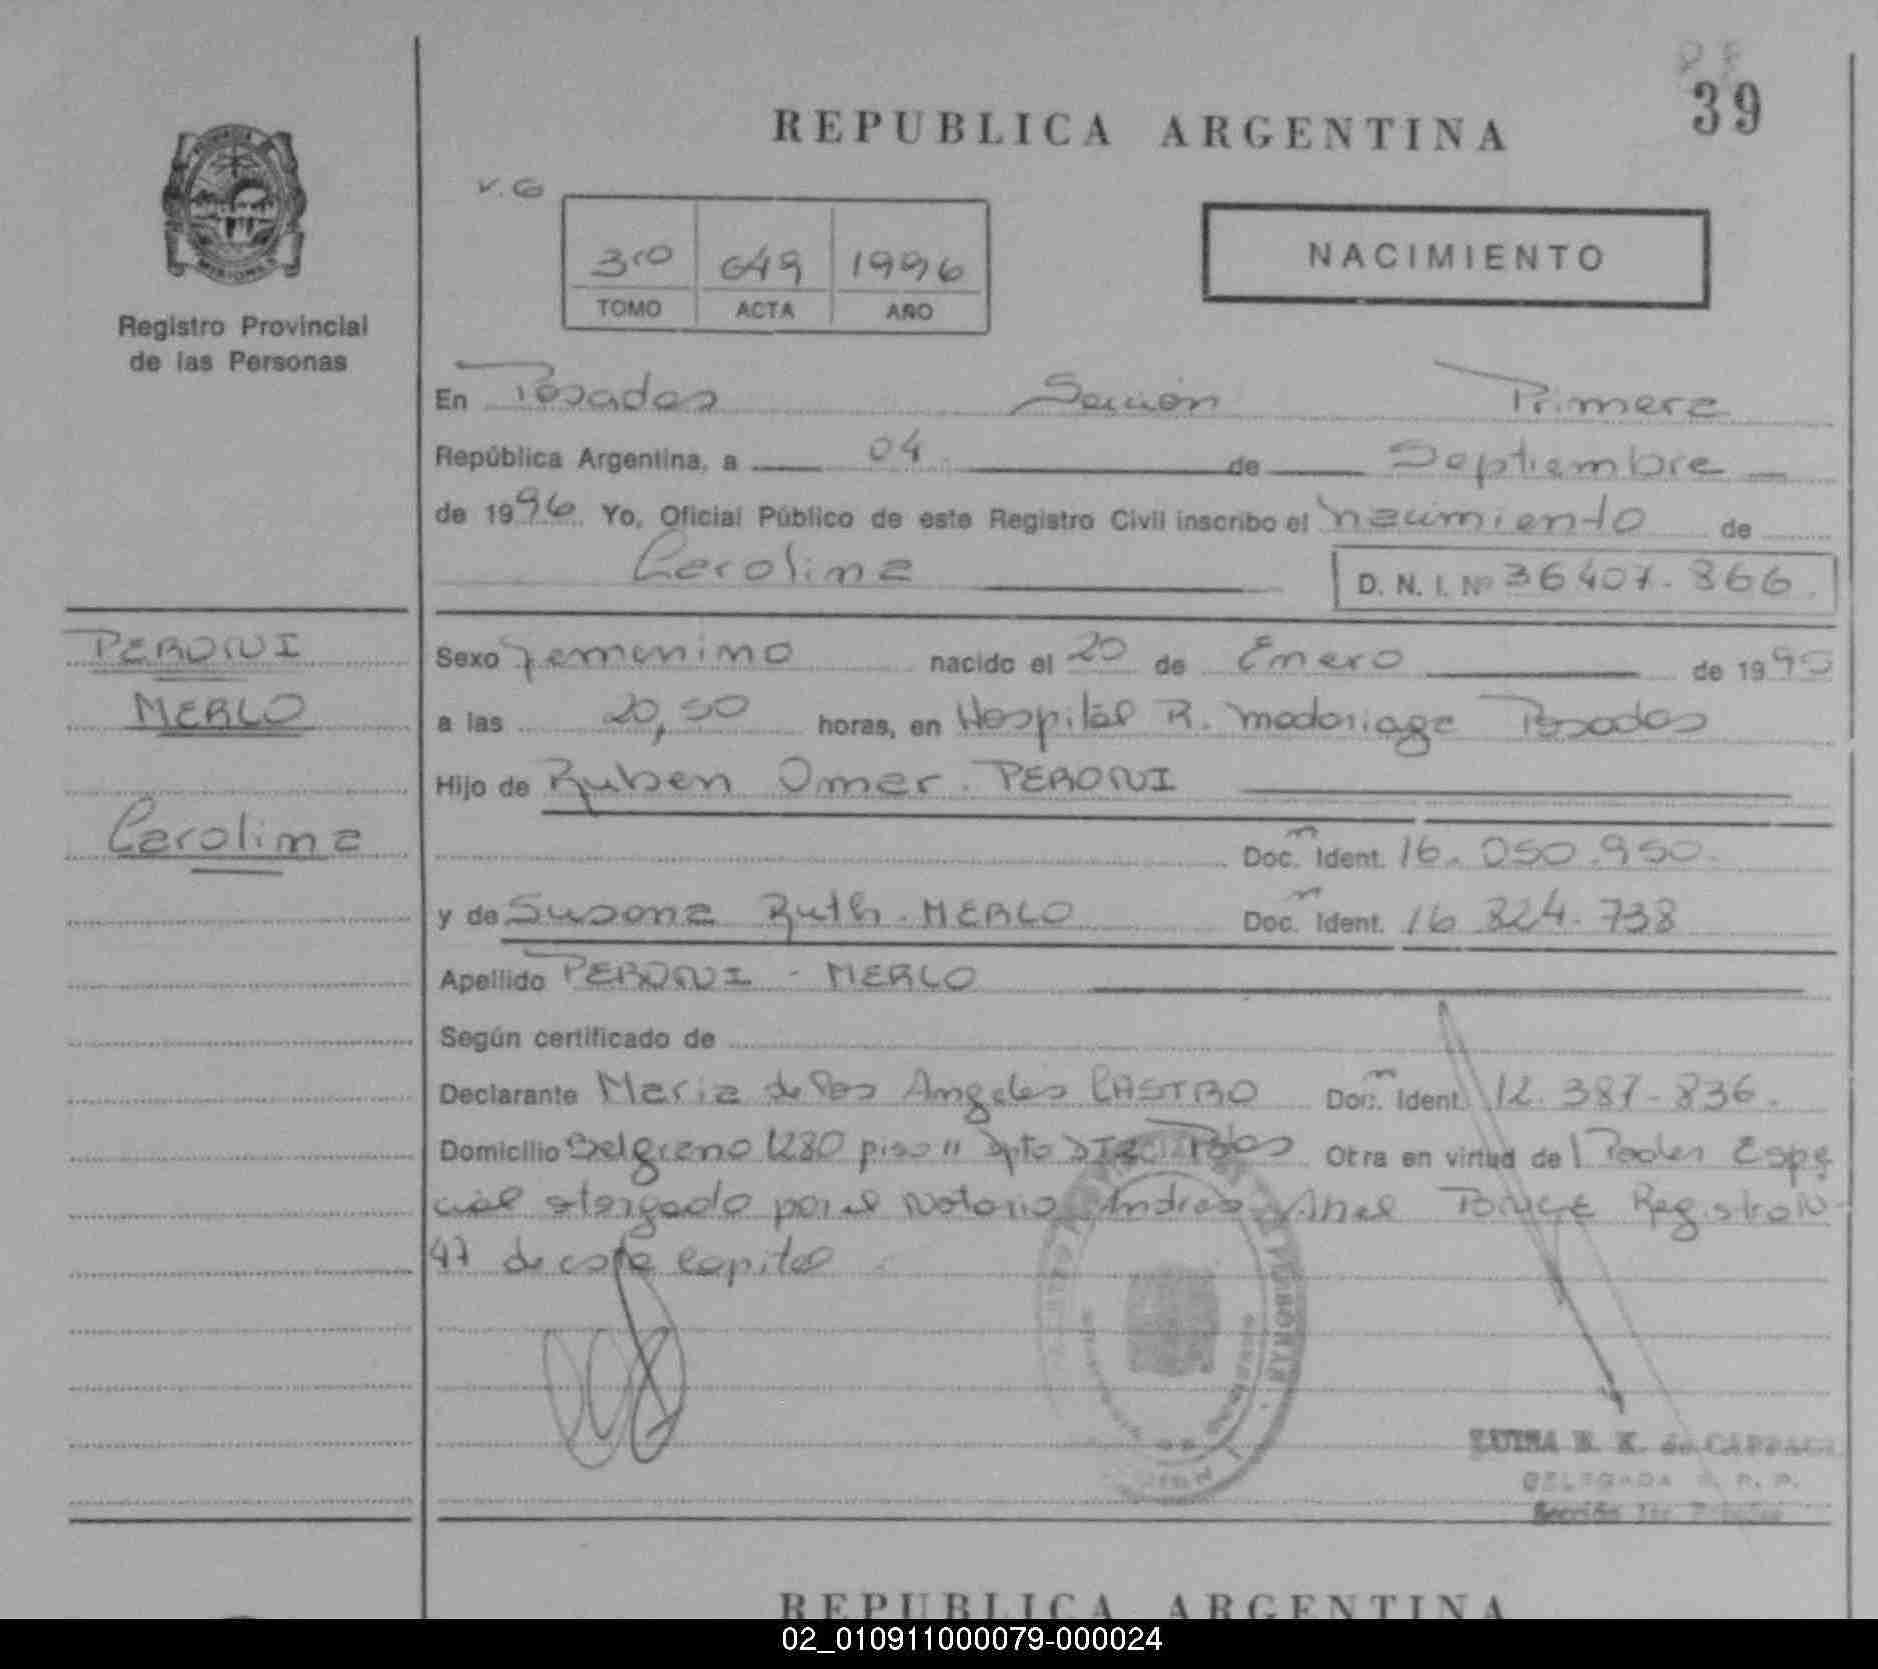 39
REPUBLICA ARGENTINA
V.G
3ro 649 1996
TOMO ACTA AÑO
NACIMIENTO
MISIONES
Registro Provincial
de las Personas
En Posadas Sección Primera
República Argentina, a 04 de Septiembre
de 1996. Yo, Oficial Público de este Registro Civil inscribo el nacimiento de
Carolina D. N. I. Nº 36407.866.
PERONI
MERLO
Carolina
Sexo femenino nacido el 20 de Enero de 1990
a las 20,50 horas, en Hospital R. Madariaga Posadas
Hijo de Ruben Omar PERONI
Doc. Ident. 16.050.950.
y de Susana Ruth MERLO Doc. Ident. 16 824.738
Apellido PERONI - MERLO
Según certificado de
Declarante Maria de los Angeles CASTRO Doc. Ident. 12.387.836.
Domicilio Belgrano 1280 piso 11 Dpto Pdas Otra en virtud del Poder Espe
cial otorgado por el Notario Andres Ariel PONCE Registro N
47 de esta Capital
DELEGADA R. P. P.
Sección 1ra
REPUBLICA ARGENTINA
02_010911000079-000024